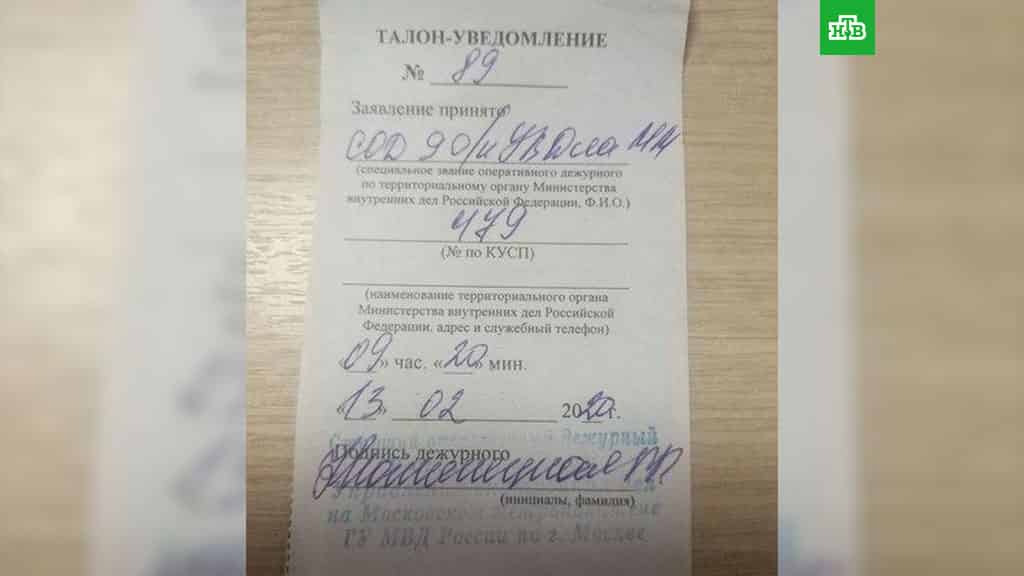 НТВ
ТАЛОН-УВЕДОМЛЕНИЕ
№ 89
Заявление принято
СОД 9 о/п УВД на ММ
(специальное звание оперативного дежурного
по территориальному органу Министерства
внутренних дел Российской Федерации, Ф.И.О.)
479
(№ по КУСП)
(наименование территориального органа
Министерства внутренних дел Российской
Федерации, адрес и служебный телефон)
«09» час. «20» мин.
«13» 02 2020г.
оперативный дежурный
Подпись дежурного
(инициалы, фамилия)
на Московском метрополитене
ГУ МВД России по г. Москве